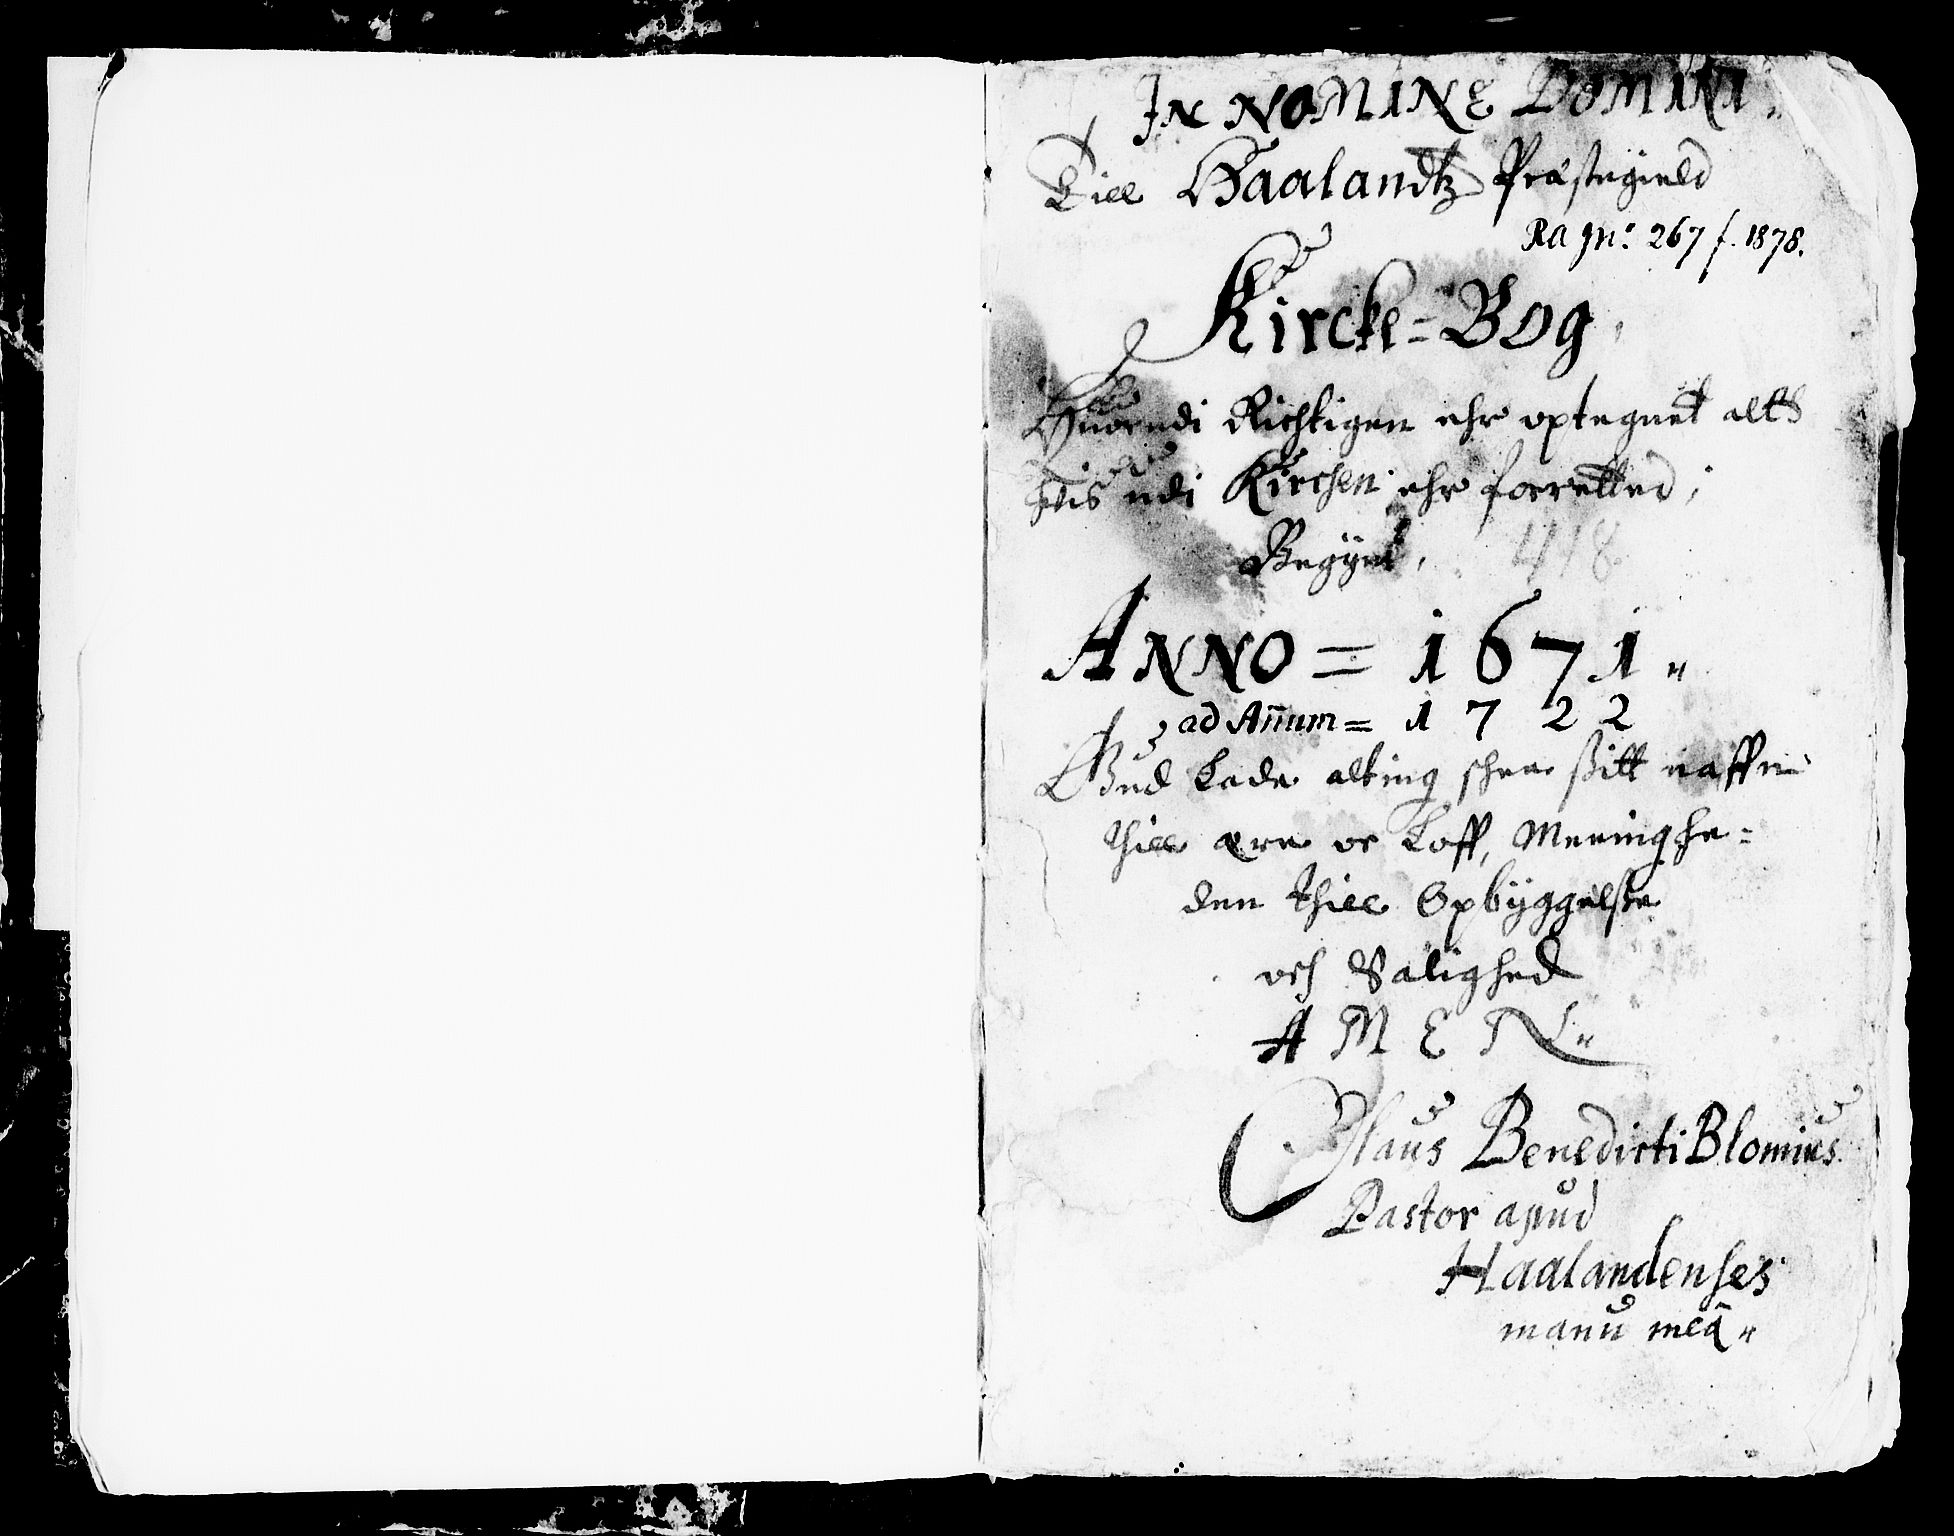 IN NOMINE DOMINI
Till Haalandtz Præstegield
RA Nr. 267 f. 1878.
Kircke=Bog,
Huorudi Richtigen ehr optegnet alt
hvis udi Kirchen ehr forretted;
Begynt,
418
ANNO = 1671 "
ad Añum = 1722
Gud Lade alting schee sitt naffn
thill ære oc Loff, Meenighe=
den thill Opbyggelße
och Salighed
AMEN "
Olaus Benedicti Blomius.
Pastor apud
Haalandenses
manu meâ "